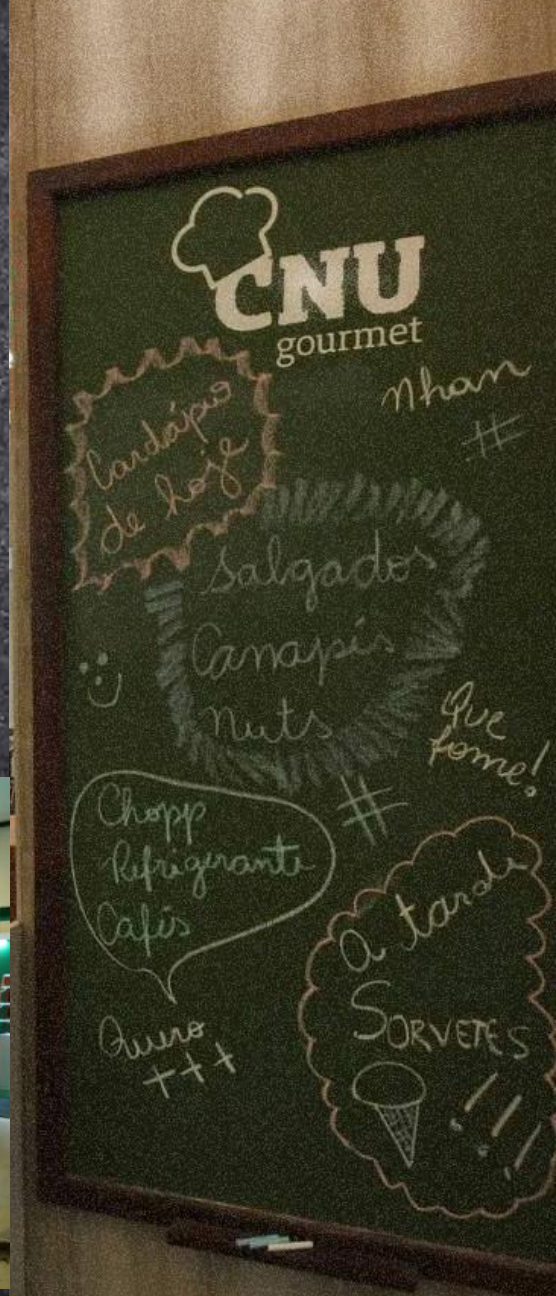 CNU
gourmet
Nhan
#
Cardápio
de hoje
Salgados
Canapés
Nuts
Que
fome!
#
Chopp
Refrigerante
Cafés
Quero
+++
A tarde
SORVETES
!!!